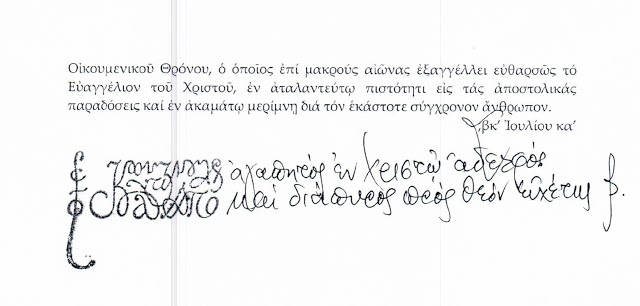 Οἰκουμενικοῦ Θρόνου, ὁ ὁποῖος ἐπί μακρούς αἰῶνας ἐξαγγέλλει εὐθαρσῶς τό
Εὐαγγέλιον τοῦ Χριστοῦ, ἐν ἀταλαντεύτῳ πιστότητι εἰς τάς ἀποστολικάς
παραδόσεις καί ἐν ἀκαμάτῳ μερίμνῃ διά τόν ἑκάστοτε σύγχρονον ἄνθρωπον.
͵βκ’ Ἰουλίου κα’
ἀγαπητός ἐν Χριστῷ ἀδελφός
καί διάπυρος πρός Θεόν εὐχέτης β.